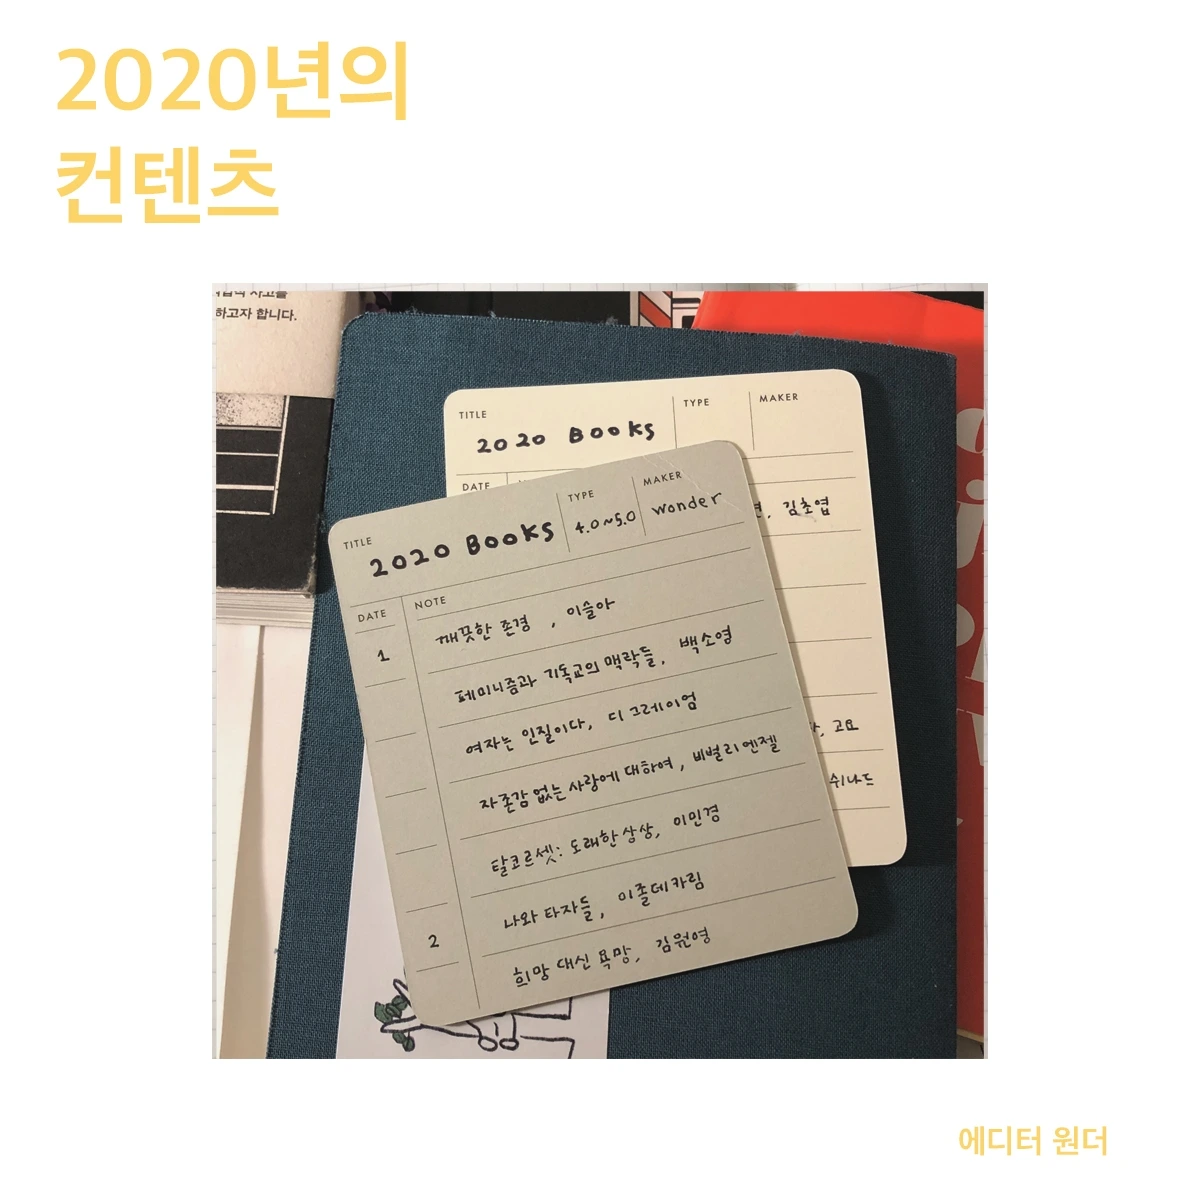 2020년의
컨텐츠
하고자 합니다.
TITLE
2020 Books
TYPE
MAKER
DATE
김초엽
고요
쉬나드
TITLE
2020 Books
TYPE
4.0~5.0
MAKER
wonder
DATE
NOTE
1
깨끗한 존경 , 이슬아
페미니즘과 기독교의 맥락들, 백소영
여자는 인질이다, 디 그레이엄
자존감 없는 사랑에 대하여, 비벌리 엔젤
탈코르셋: 도래한 상상, 이민경
나와 타자들, 이졸데 카림
2
희망 대신 욕망, 김원영
에디터 원더